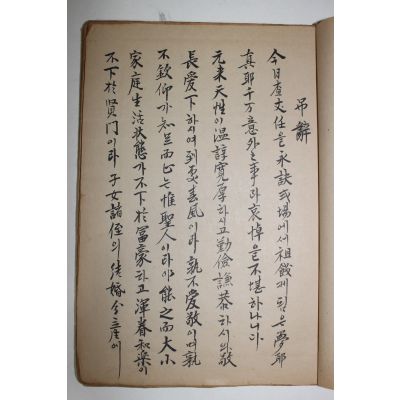 吊辭
今日査丈任을永訣式場에셔祖餞게됨은夢耶
真耶千万意外之事라哀悼을不堪하나니다
元来天性이温諄寛厚하시고勤儉謙恭하시의敬
長愛下하시여到處春風이라孰不愛敬이며孰
不欽仰가知

而止은惟聖人이라야能之而大小
家庭生活状態가不下於冨豪하고渾眷和楽이
不下於賢門이라子女諸侄의结婚分

에